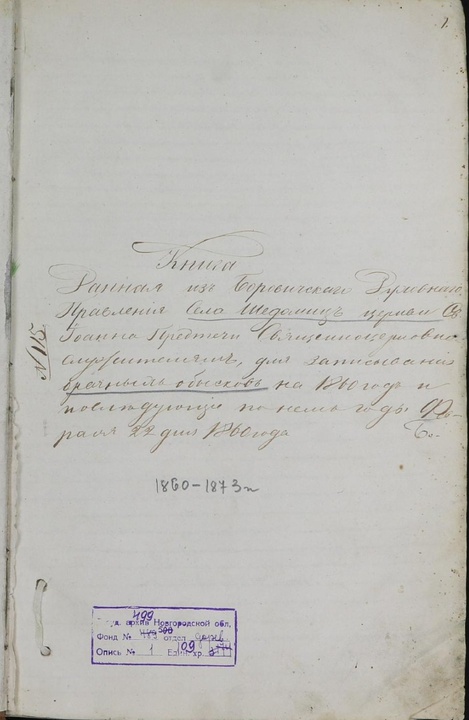 1.
Книга
Данная изъ Боровичскаго Духовнаго
Правления Села Шедомицъ церкви Св.
Іоанна Предтечи Священноцерковно
служителямъ, для записыванія
брачныхъ обысковъ на 1860 годъ и
последующіе по немъ годы Фев-
раля 22 дня 1860 года
1860-1873 гг
499
архив Новгородской обл.
Фонд № отдел
Опись № 1 Един. хр.